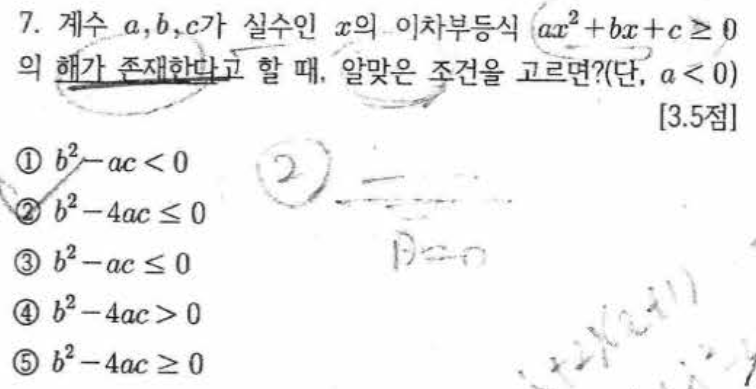 7. 계수 a, b, c가 실수인 x의 이차부등식 ax²+bx+c ≥ 0
의 해가 존재한다고 할 때, 알맞은 조건을 고르면?(단, a < 0)
[3.5점]
① b²-ac < 0
② b²-4ac ≤ 0
③ b²-ac ≤ 0
④ b²-4ac > 0
⑤ b²-4ac ≥ 0
2